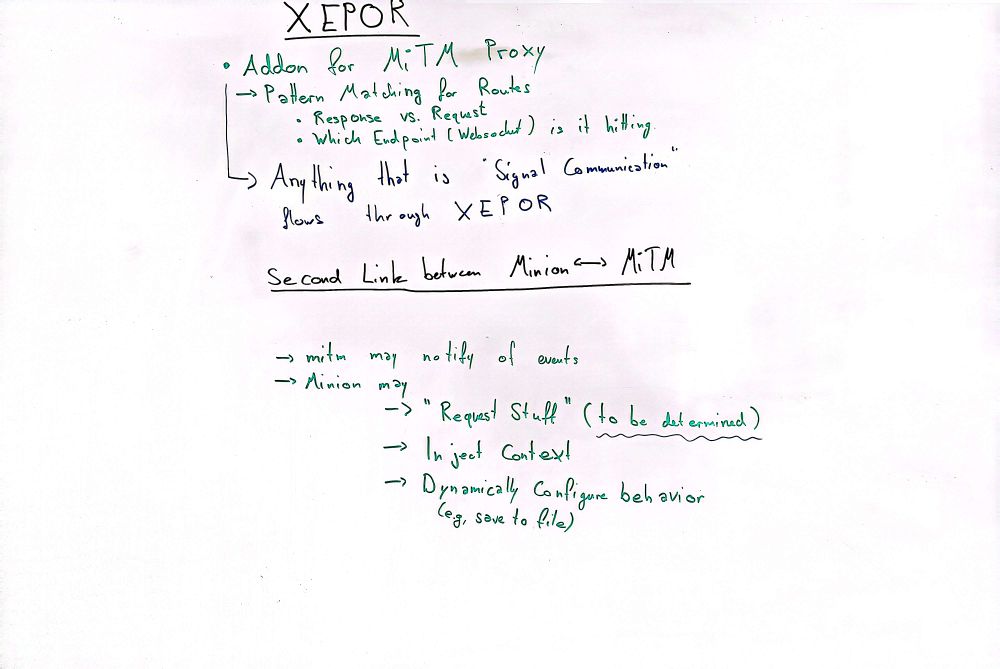 XEPOR
• Addon for MiTM Proxy
→ Pattern Matching for Routes
• Response vs. Request
• Which Endpoint (Websocket) is it hitting
→ Anything that is "Signal Communication"
flows through XEPOR
Second Link between Minion ↔ MiTM
→ mitm may notify of events
→ Minion may
→ "Request Stuff" (to be determined)
→ Inject Context
→ Dynamically Configure behavior
(e.g, save to file)